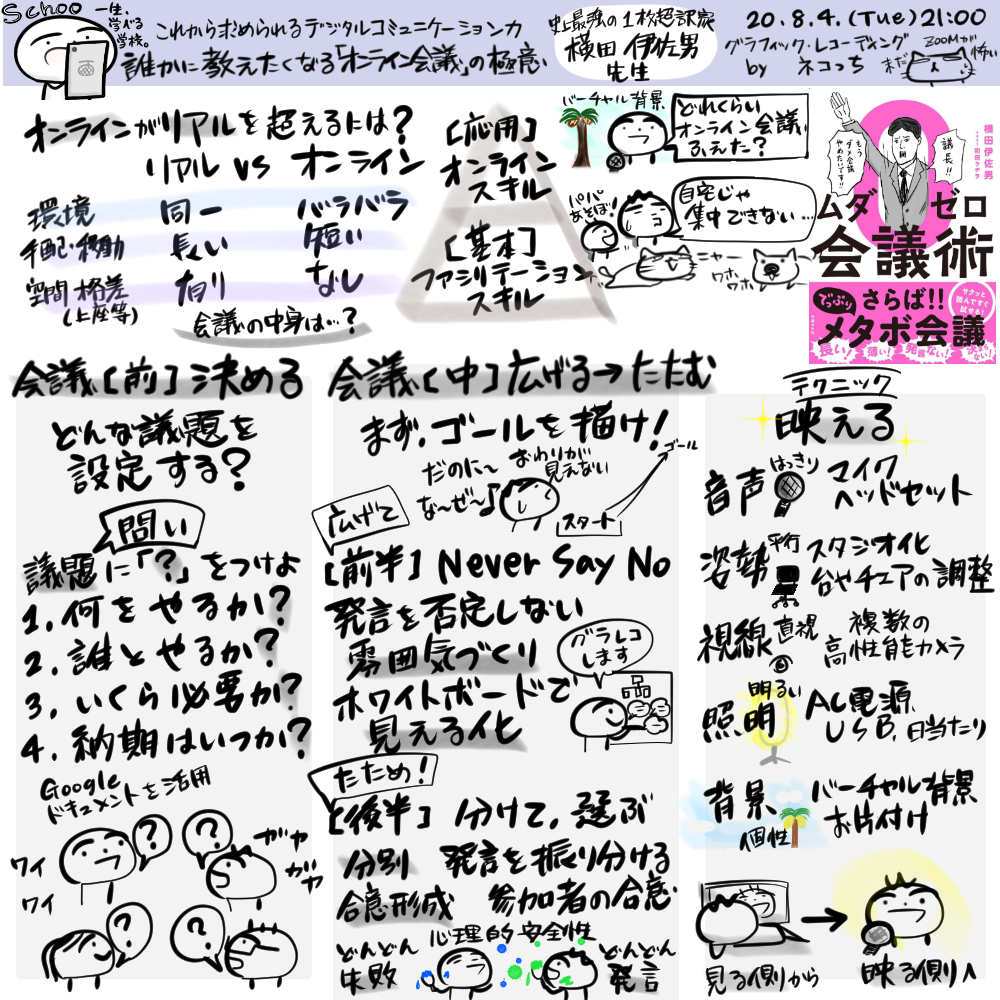 Schoo
一生、
学べる
学校。
これから求められるデジタルコミュニケーション力
誰かに教えたくなる「オンライン会議」の極意
史上最強の1枚超訳家
横田 伊佐男
先生
20.8.4.(Tue)21:00
グラフィック・レコーディング
by ネコっち
まだ
ZOOMが
怖い
オンラインがリアルを超えるには?
リアル vs オンライン
環境 同一 バラバラ
手配・移動 長い 短い
空間格差 有り なし
(上座等)
会議の中身は…?
[応用]
オンライン
スキル
[基本]
ファシリテーション
スキル
バーチャル背景
どれくらい
オンライン会議
ふえた?
パパ
あそぼ!
自宅じゃ
集中できない…
ニャー
ワホ
ワホ
横田伊佐男
議長!!
もう
ダメ会議
やめたいです!!
ムダゼロ
会議術
でっぷり
さらば!!
メタボ会議
サクッと
読んですぐ
試せる!
長い!
薄い!
発言ない!
決まらない!
会議[前]決める
どんな議題を
設定する?
問い
議題に「?」をつけよ
1.何をやるか?
2.誰とやるか?
3.いくら必要か?
4.納期はいつか?
Google
ドキュメントを活用
ワイ
ワイ
?
?
ガヤ
ガヤ
?
?
会議[中]広げる→たたむ
まず、ゴールを描け!
だのに〜
な〜ぜ〜♪
おわりが
見えない
ゴール
スタート
広げて
[前半]Never Say No
発言を否定しない
雰囲気づくり
ホワイトボードで
見える化
グラレコ
します
たため!
[後半]分けて、選ぶ
分別 発言を振り分ける
合意形成 参加者の合意
心理的安全性
どんどん
失敗
どんどん
発言
テクニック
映える
音声 はっきり マイク
ヘッドセット
姿勢 平行 スタジオ化
台やチェアの調整
視線 直視 複数の
高性能カメラ
照明 明るい AC電源
USB、日当たり
背景 個性 バーチャル背景
お片付け
見る側から
映る側へ